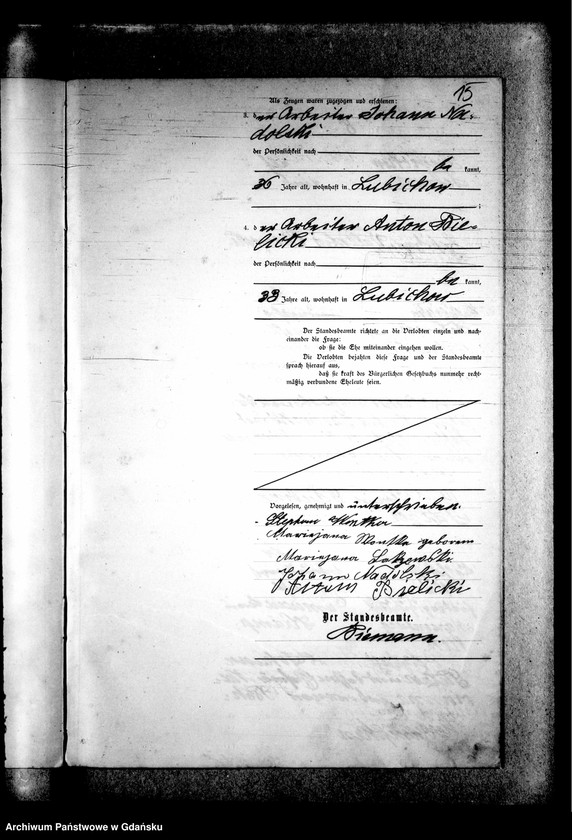 15
Als Zeugen waren zugezogen und erschienen:
3. der Arbeiter Johann Na-
dolski
der Persönlichkeit nach
be kannt,
36 Jahre alt, wohnhaft in Lubichow
;
4. der Arbeiter Anton Bie-
licki
der Persönlichkeit nach
be kannt,
33 Jahre alt, wohnhaft in Lubichow
Der Standesbeamte richtete an die Verlobten einzeln und nach-
einander die Frage:
ob sie die Ehe miteinander eingehen wollen.
Die Verlobten bejahten diese Frage und der Standesbeamte
sprach hierauf aus,
daß sie kraft des Bürgerlichen Gesetzbuchs nunmehr recht-
mäßig verbundene Eheleute seien.
Vorgelesen, genehmigt und unterschrieben.
Stephan
Maryjana geborene
Maryjana
Johann Nadolski
Anton Bielicki
Der Standesbeamte.
Archiwum Państwowe w Gdańsku